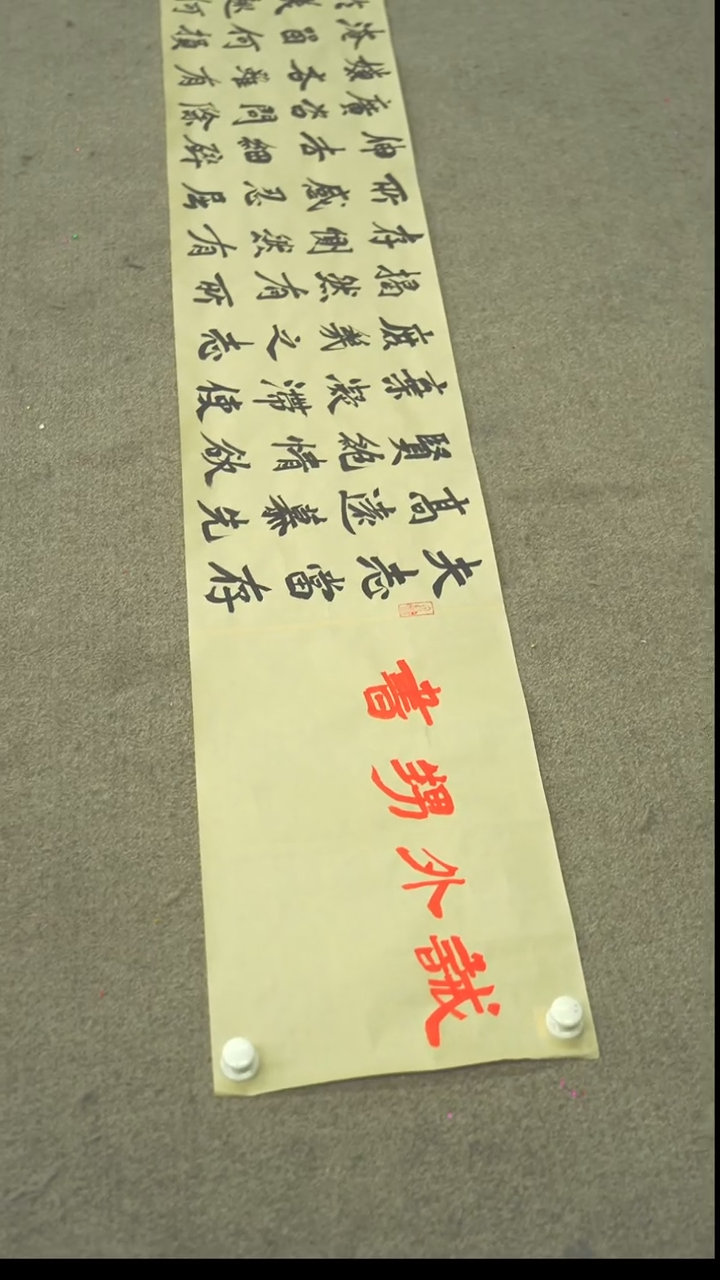 誡外甥書
夫志當存
高遠慕先
賢絕情欲
棄凝滯使
庶幾之志
揭然有所
存惻然有
所感忍屈
伸去細碎
廣咨問除
嫌吝雖有
淹留何損
美趣何